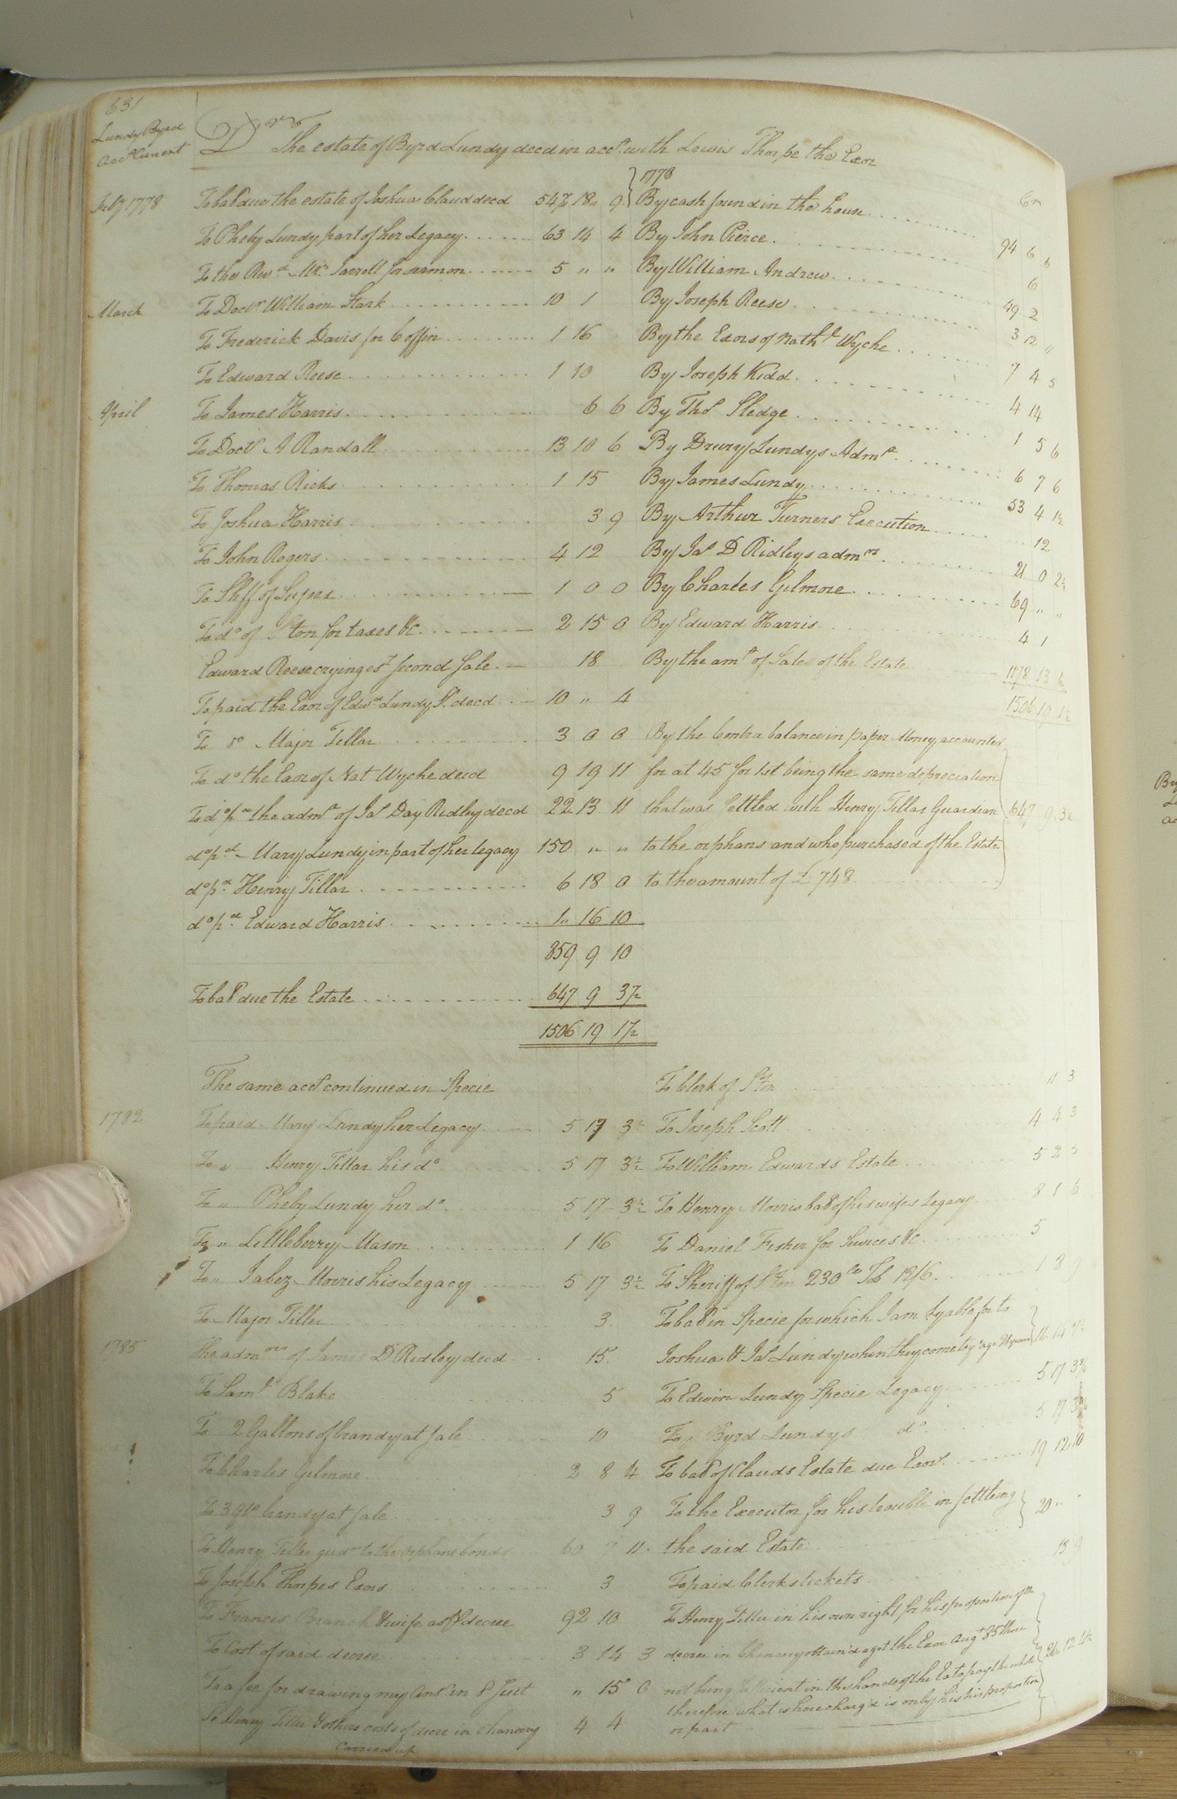 631
Lundy Byrd
Acct Current
Dr The estate of Byrd Lundy decd in acct with Lewis Thorpe the Exor
Cr
July 1778 To bal due the estate of Joshua Claud decd 547 18 9
To Pheby Lundy part of her Legacy 63 14 4
To the Revd Mr Jarrell for sarmon 5 " "
March To Doctr William Stark 10 1
To Frederick Davis for Coffin 1 16
To Edward Reese 1 10
April To James Harris 6 6
To Doctr A Randall 13 10 6
To Thomas Ricks 1 15
To Joshua Harris 3 9
To John Rogers 4 12
To Shff of Sussex 1 0 0
To do of Ston for taxes &c 2 15 0
Edward Reese crying est second Sale 18
To paid the Exor of Edwd Lundy Sr decd 10 " 4
To do Major Tillar 3 0 0
To do the Exor of Nat Wyche decd 9 19 11
To do pd the admr of Jas Day Ridley decd 22 13 11
do pd Mary Lundy in part of her legacy 150 " "
do pd Henry Tillar 6 18 0
do pd Edward Harris 1 16 10
859 9 10
To bal due the Estate 647 9 3½
1506 19 1½
1778
By cash found in the house 94 6 6
By John Pierce 6
By William Andrew 49 2
By Joseph Reese 3 12 "
By the Exors of Nathl Wyche 7 4 3
By Joseph Kidd 4 14
By Thos Sledge 1 5 6
By Drury Lundys Admr 6 7 6
By James Lundy 53 4 1½
By Arthur Turners Execution 12
By Jas D Ridleys admors 21 0 2½
By Charles Gilmore 69 " "
By Edward Harris 4 1
By the amt of Sales of the Estate 1178 13
1506 19 1½
By the Contra balance in paper Money accounted
for at 45 for 1 it being the same depreciation
that was Settled with Henry Tillar Guardian 647 9 3½
to the orphans and who purchased of the Estate
to the amount of £748
The same acct continued in Specie
1782 To paid Mary Lundy her Legacy 5 17 3½
To " Henry Tillar his do 5 17 3½
To " Pheby Lundy her do 5 17 3½
To " Littleberry Mason 1 16
To " Jabez Morris his Legacy 5 17 3½
To Major Tiller 3
1785 The admors of James D Ridley decd 15
To Saml Blake 5
To 2 Gallons of brandy at Sale 10
To Charles Gilmore 2 8 4
To 3 qts brandy at Sale 3 9
To Henry Tiller gudn to the orphans bonds 60 7 11
To Joseph Thorpes Exors 3
To Francis Branch & wife as pr decree 92 10
To Cost of said decree 3 14 3
To a fee for drawing my Ansr in Sd Suit " 15 0
To Henry Tiller & others costs of decree in Chancery 4 4
Carried up
To Clerk of Ston 11 3
To Joseph Scott 4 4 3
To William Edwards Estate 5 2 3
To Henry Morris bal of his wifes Legacy 8 1 6
To Daniel Fisher for Services &c 5
To Sheriff of Ston 230 lb Tob 12/6 1 8 9
To bal in Specie for which I am lyable for to
Joshua & Jas Lundy when they come to age
To Edwin Lundy Specie Legacy 5 17 3½
To Byrd Lundys do 5 17 3½
To bal of Clauds Estate due Exor 19 12 10
To the Executor for his trouble in settling 20 " "
the said Estate
To paid Clerks tickets
To Henry Tiller in his own right for his proportion of the
decree in Chancery obtain'd agst the Exor Augt 85 there
not being sufficient in the hands of the Ex to pay the whole
therefore what is here charg'd is only his his proportion
or part